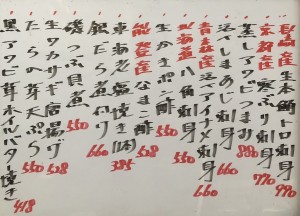 長崎産生本鮪トロ刺身 990
京都産寒ぶり刺身 770
蒸しアワビつまみ 880
活〆しまあじ刺身 660
青森産活〆アイナメ刺身 660
北海道産八角刺身 550
生かきポン酢 550
能登産なまこ酢 528
車海老塩焼き(1本) 385
銀だら 660
磯つぶ貝煮 550
生 唐揚げ 528
たらの芽天ぷら 550
黒アワビ茸 バター焼き 418